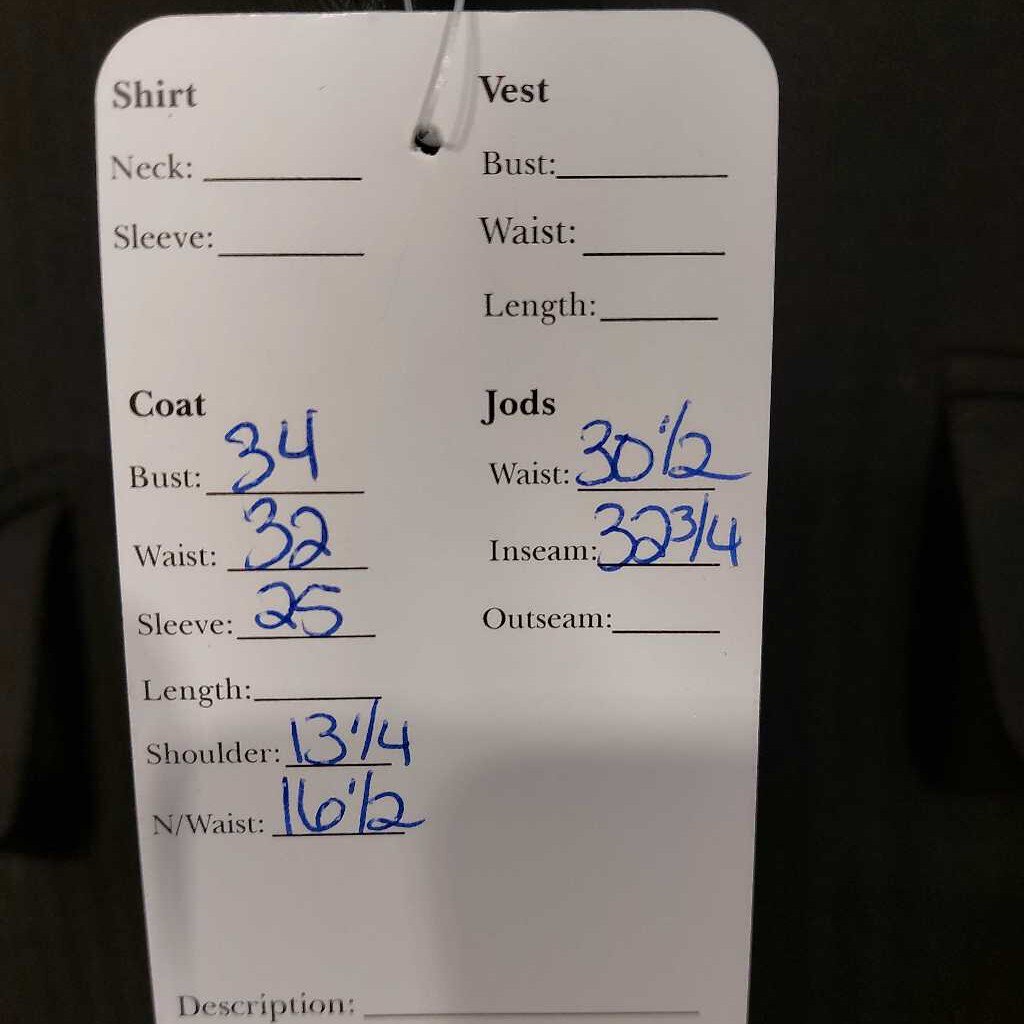 Shirt
Neck:
Sleeve:
Vest
Bust:
Waist:
Length:
Coat
Bust: 34
Waist: 32
Sleeve: 25
Length:
Shoulder: 13 1/4
N/Waist: 16 1/2
Jods
Waist: 30 1/2
Inseam: 32 3/4
Outseam:
Description: